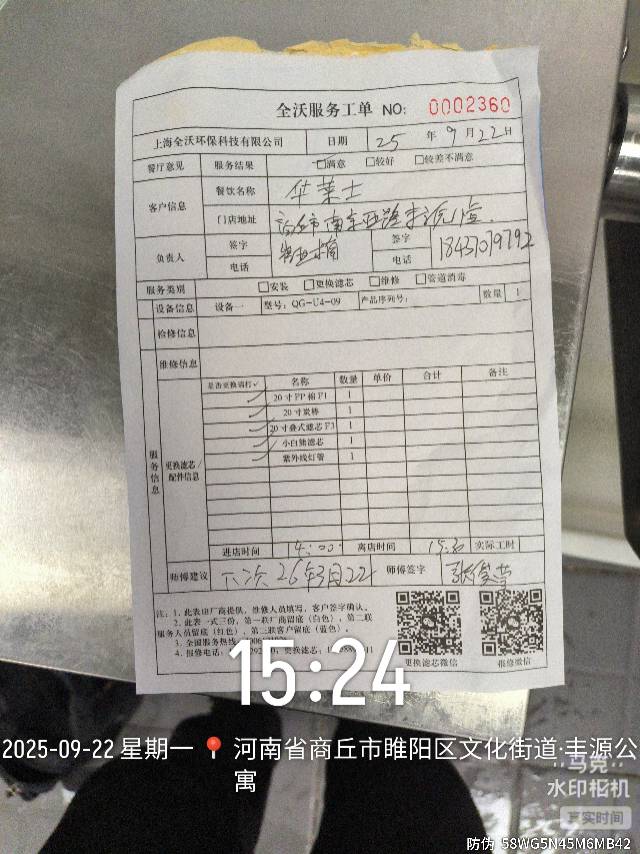 全沃服务工单 NO: 0002360
上海全沃环保科技有限公司 日期 25 年 9 月 22 日
餐厅意见 服务结果 □满意 □较好 □较差不满意
客户信息 餐饮名称 华莱士
门店地址
负责人 签字 签字
电话 电话 18437079792
服务类别 □安装 □更换滤芯 □维修 □管道消毒
设备信息 设备一 型号: QG-U4-09 产品序列号: 数量 1
检修信息
维修信息
服务信息 更换滤芯/配件信息
是否更换请打✓ 名称 数量 单价 合计 备注
✓ 20寸PP棉F1 1
✓ 20寸炭棒 1
✓ 20寸叠式滤芯F3 1
✓ 小白熊滤芯 1
✓ 紫外线灯管 1
进店时间 14:00 离店时间 15:30 实际工时
师傅建议 下次26年3月22 师傅签字
注: 1. 此表由厂商提供, 维修人员填写, 客户签字确认。
2. 此表一式三份, 第一联厂商留底(白色), 第二联
服务人员留底(红色), 第三联客户留底(蓝色)。
3. 全国服务热线
4. 报修电话: 更换滤芯:
更换滤芯微信 报修微信
15:24
2025-09-22 星期一 河南省商丘市睢阳区文化街道·丰源公
寓
马克
水印相机
真实时间
防伪 58WG5N45M6MB42